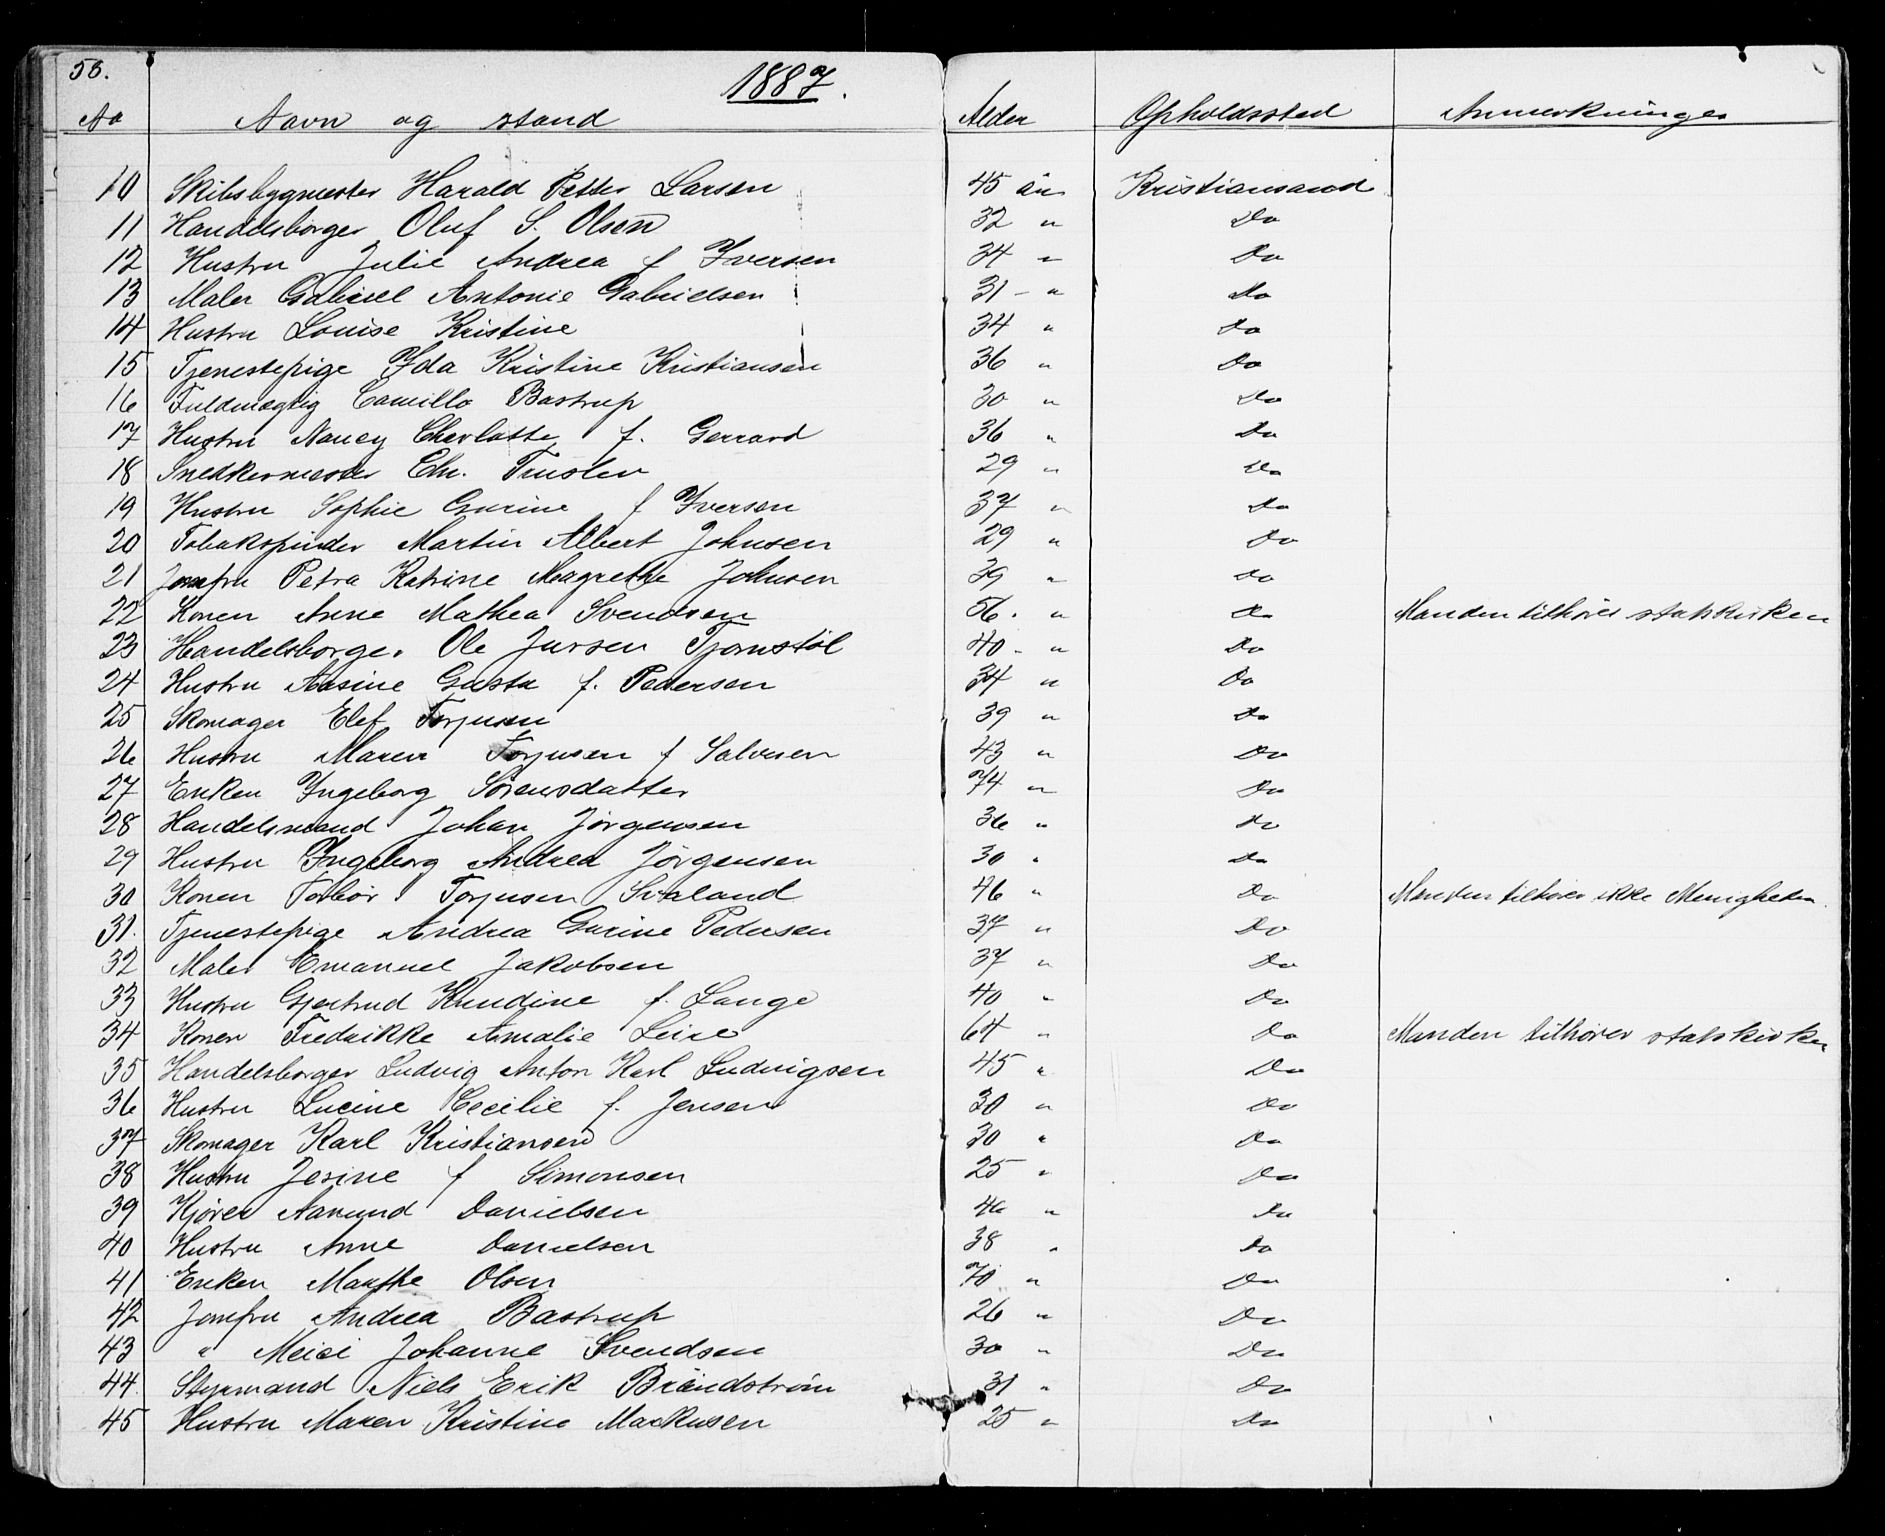 56.
1887.
No Navn og stand Alder Opholdssted Anmerkninger
10 Skibsbygmester Harald Petter Larsen 45 år Kristiansand
11 Handelsborger Oluf S. Olsen 32 " Do
12 Hustru Julie Andrea f Iversen 34 " Do
13 Maler Gabriel Antonie Gabrielsen 31 - " Do
14 Hustru Louise Kristine 34 " Do
15 Tjenestepige Ida Kristine Kristiansen 36 " Do
16 Fuldmægtig Camillo Bastrup 30 " Do
17 Hustru Nancy Charlotte f. Gerrard 36 " Do
18 Snedkermester Chr. Truslen 29 " Do
19 Hustru Sophie Gurine f Iversen 37 " Do
20 Tobakspinder Martin Albert Johnsen 29 " Do
21 Jomfru Petra Katrine Magrethe Johnsen 39 " Do
22 Konen Anne Mathea Svendsen 56. " Do Manden tilhører statskirken
23 Handelsborger Ole Jursen Tjomstöl 40 - " Do
24 Hustru Aasine Gusta f. Pedersen 34 " Do
25 Skomager Elef Torjusen 39 " Do
26 Hustru Maren Torjusen f Salvesen 43 " Do
27 Enken Ingeborg Sørensdatter 74 " Do
28 Handelsmand Johan Jørgensen 36 " Do
29 Hustru Ingeborg Andrea Jørgensen 30 " Do
30 Konen Torbør Torjusen Sirland 46 " Do Manden tilhører ikke Menigheden.
31. Tjenestepige Andrea Gurine Pedersen 37 " Do
32 Maler Emanuel Jakobsen 37 " Do
33 Hustru Gjertrud Knudine f. Lange 40 " Do
34 Konen Fredrikke Amalie Leire 64 " Do Manden tilhører statskirken
35 Handelsborger Ludvig Anton Karl Ludvigsen 45 " Do
36 Hustru Lucine Cecilie f. Jensen 30 " Do
37 Skomager Karl Kristiansen 30 " Do
38 Hustru Jesine f Simonsen 25 " Do
39 Kjører Aanund Danielsen 46 " Do
40 Hustru Anne Danielsen 38 " Do
41 Enken Marthe Olsen 70 " Do
42 Jomfru Andrea Bastrup 26 " Do
43 " Meier Johanne Svendsen 30 " Do
44. Styrmand Niels Erik Brändstrøm 31 " Do
45 Hustru Maren Kristine Markusen 25 " Do